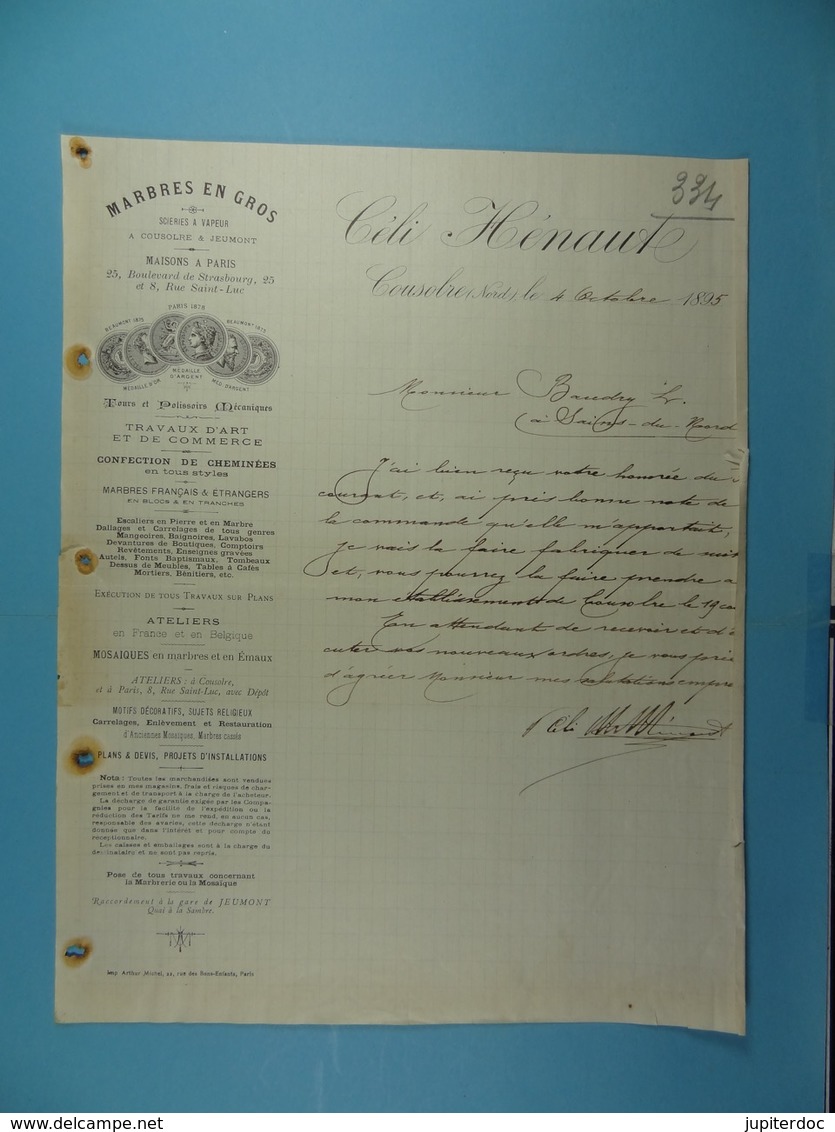 MARBRES EN GROS
SCIERIES A VAPEUR
A COUSOLRE & JEUMONT
MAISONS A PARIS
25, Boulevard de Strasbourg, 25
et 8, Rue Saint-Luc
PARIS 1878
BEAUMONT 1875
BEAUMONT 1873
MÉDAILLE D'OR
MÉDAILLE
D'ARGENT
MÉD. D'ARGENT
Tours et Polissoirs Mécaniques
TRAVAUX D'ART
ET DE COMMERCE
CONFECTION DE CHEMINÉES
en tous styles
MARBRES FRANÇAIS & ÉTRANGERS
EN BLOCS & EN TRANCHES
Escaliers en Pierre et en Marbre
Dallages et Carrelages de tous genres
Mangeoires, Baignoires, Lavabos
Devantures de Boutiques, Comptoirs
Revêtements, Enseignes gravées
Autels, Fonts Baptismaux, Tombeaux
Dessus de Meubles, Tables à Cafés
Mortiers, Bénitiers, etc.
EXÉCUTION DE TOUS TRAVAUX SUR PLANS
ATELIERS
en France et en Belgique
MOSAIQUES en marbres et en Émaux
ATELIERS : à Cousolre,
et à Paris, 8, Rue Saint-Luc, avec Dépôt
MOTIFS DÉCORATIFS, SUJETS RELIGIEUX
Carrelages, Enlèvement et Restauration
d'Anciennes Mosaïques, Marbres cassés
PLANS & DEVIS, PROJETS D'INSTALLATIONS
Nota : Toutes les marchandises sont vendues
prises en mes magasins, frais et risques de char-
gement et de transport à la charge de l'acheteur.
La décharge de garantie exigée par les Compa-
gnies pour la facilité de l'expédition ou la
réduction des Tarifs ne me rend, en aucun cas,
responsable des avaries, cette décharge n'étant
donnée que dans l'intérêt et pour compte du
réceptionnaire.
Les caisses et emballages sont à la charge du
destinataire et ne sont pas repris.
Pose de tous travaux concernant
la Marbrerie ou la Mosaïque
Raccordement à la gare de JEUMONT
Quai à la Sambre.
Imp. Arthur Michel, 22, rue des Bons-Enfants, Paris
334
Céli Hénaut
Cousolre (Nord), le 4 Octobre 1895
Monsieur Baudry
à Sains-du-Nord
J'ai bien reçu votre honorée du
courant, et, ai pris bonne note de
la commande qu'elle m'apportait,
je vais la faire fabriquer de suite
et, vous pourrez la faire prendre a
mon établissement de Cousolre le 19 cou
En attendant de recevoir et d'é
cuter vos nouveaux ordres, je vous prie
d'agréer Monsieur mes salutations empre
Céli Hénaut
jupiterdoc